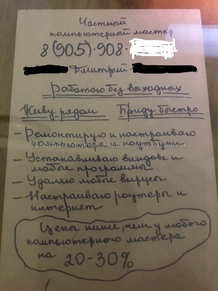 Частный
компьютерный мастер
8(905)·908·
Дмитрий
Работаю без выходных
Живу рядом Приду быстро
– Ремонтирую и настраиваю
компьютеры и ноутбуки
– Устанавливаю виндовс и
любые программы
– Удаляю любые вирусы
– Настраиваю роутеры и
интернет
Цены ниже, чем у любого
компьютерного мастера
на 20-30%